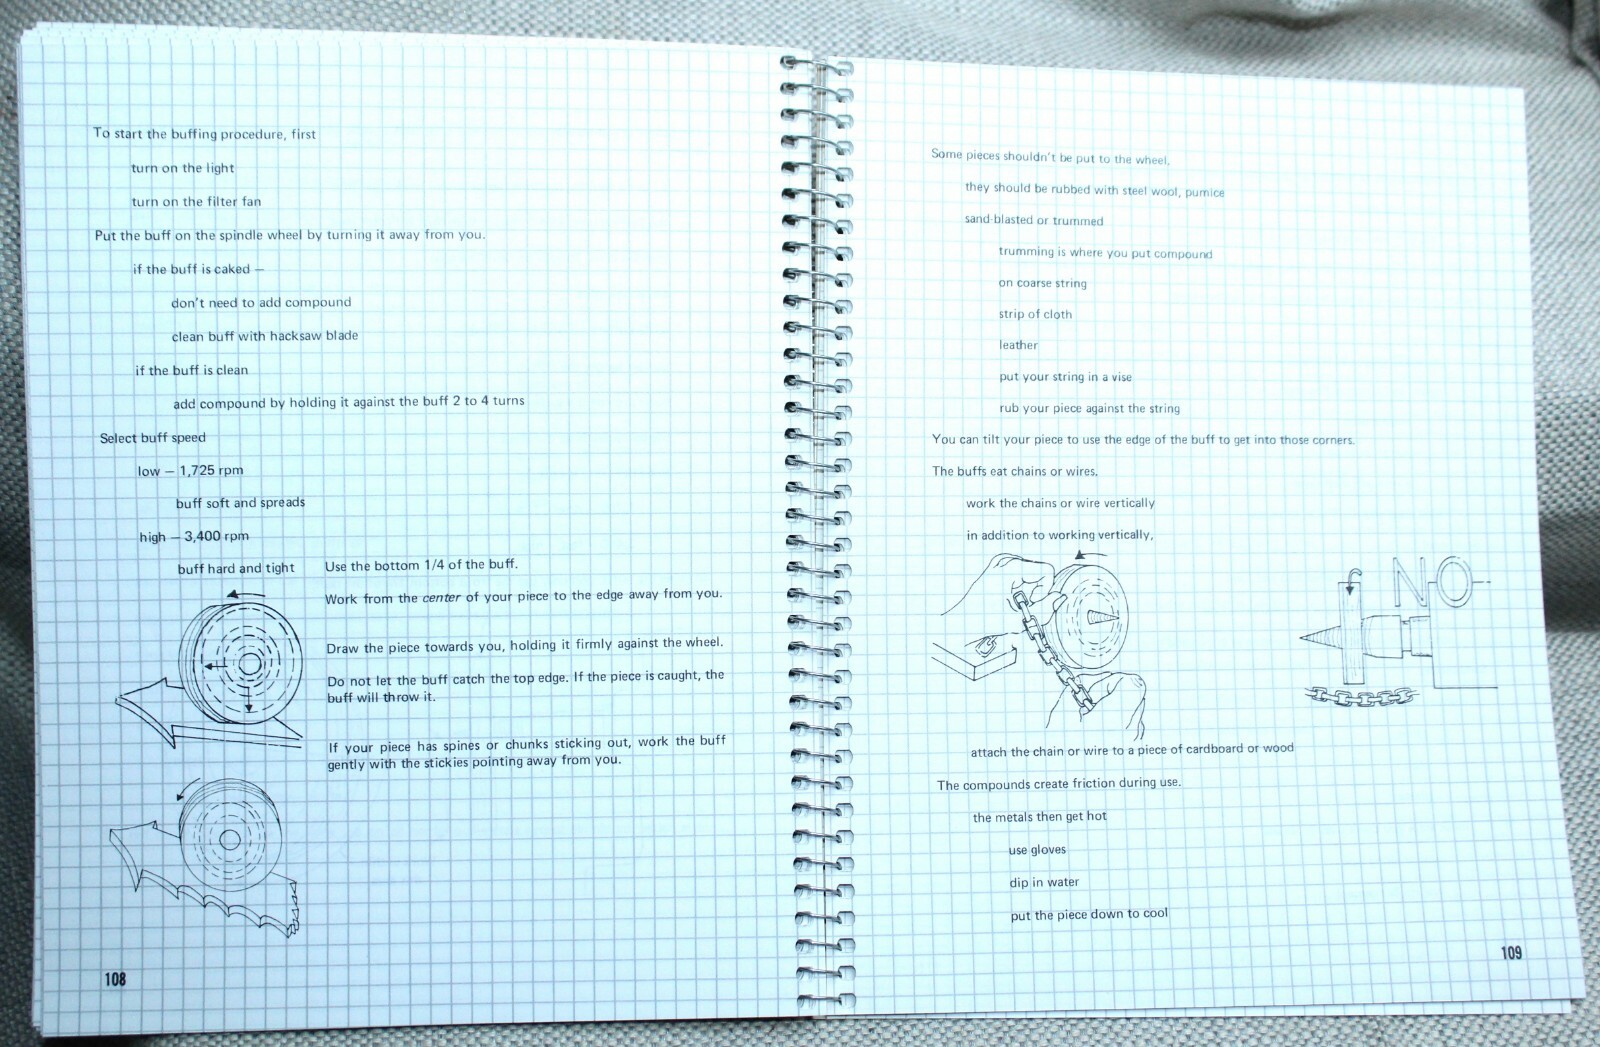 To start the buffing procedure, first
turn on the light
turn on the filter fan
Put the buff on the spindle wheel by turning it away from you.
if the buff is caked —
don't need to add compound
clean buff with hacksaw blade
if the buff is clean
add compound by holding it against the buff 2 to 4 turns
Select buff speed
low — 1,725 rpm
buff soft and spreads
high — 3,400 rpm
buff hard and tight
Use the bottom 1/4 of the buff.
Work from the center of your piece to the edge away from you.
Draw the piece towards you, holding it firmly against the wheel.
Do not let the buff catch the top edge. If the piece is caught, the
buff will throw it.
If your piece has spines or chunks sticking out, work the buff
gently with the stickies pointing away from you.
108
Some pieces shouldn't be put to the wheel,
they should be rubbed with steel wool, pumice
sand-blasted or trummed
trumming is where you put compound
on coarse string
strip of cloth
leather
put your string in a vise
rub your piece against the string
You can tilt your piece to use the edge of the buff to get into those corners.
The buffs eat chains or wires.
work the chains or wire vertically
in addition to working vertically,
NO
attach the chain or wire to a piece of cardboard or wood
The compounds create friction during use.
the metals then get hot
use gloves
dip in water
put the piece down to cool
109